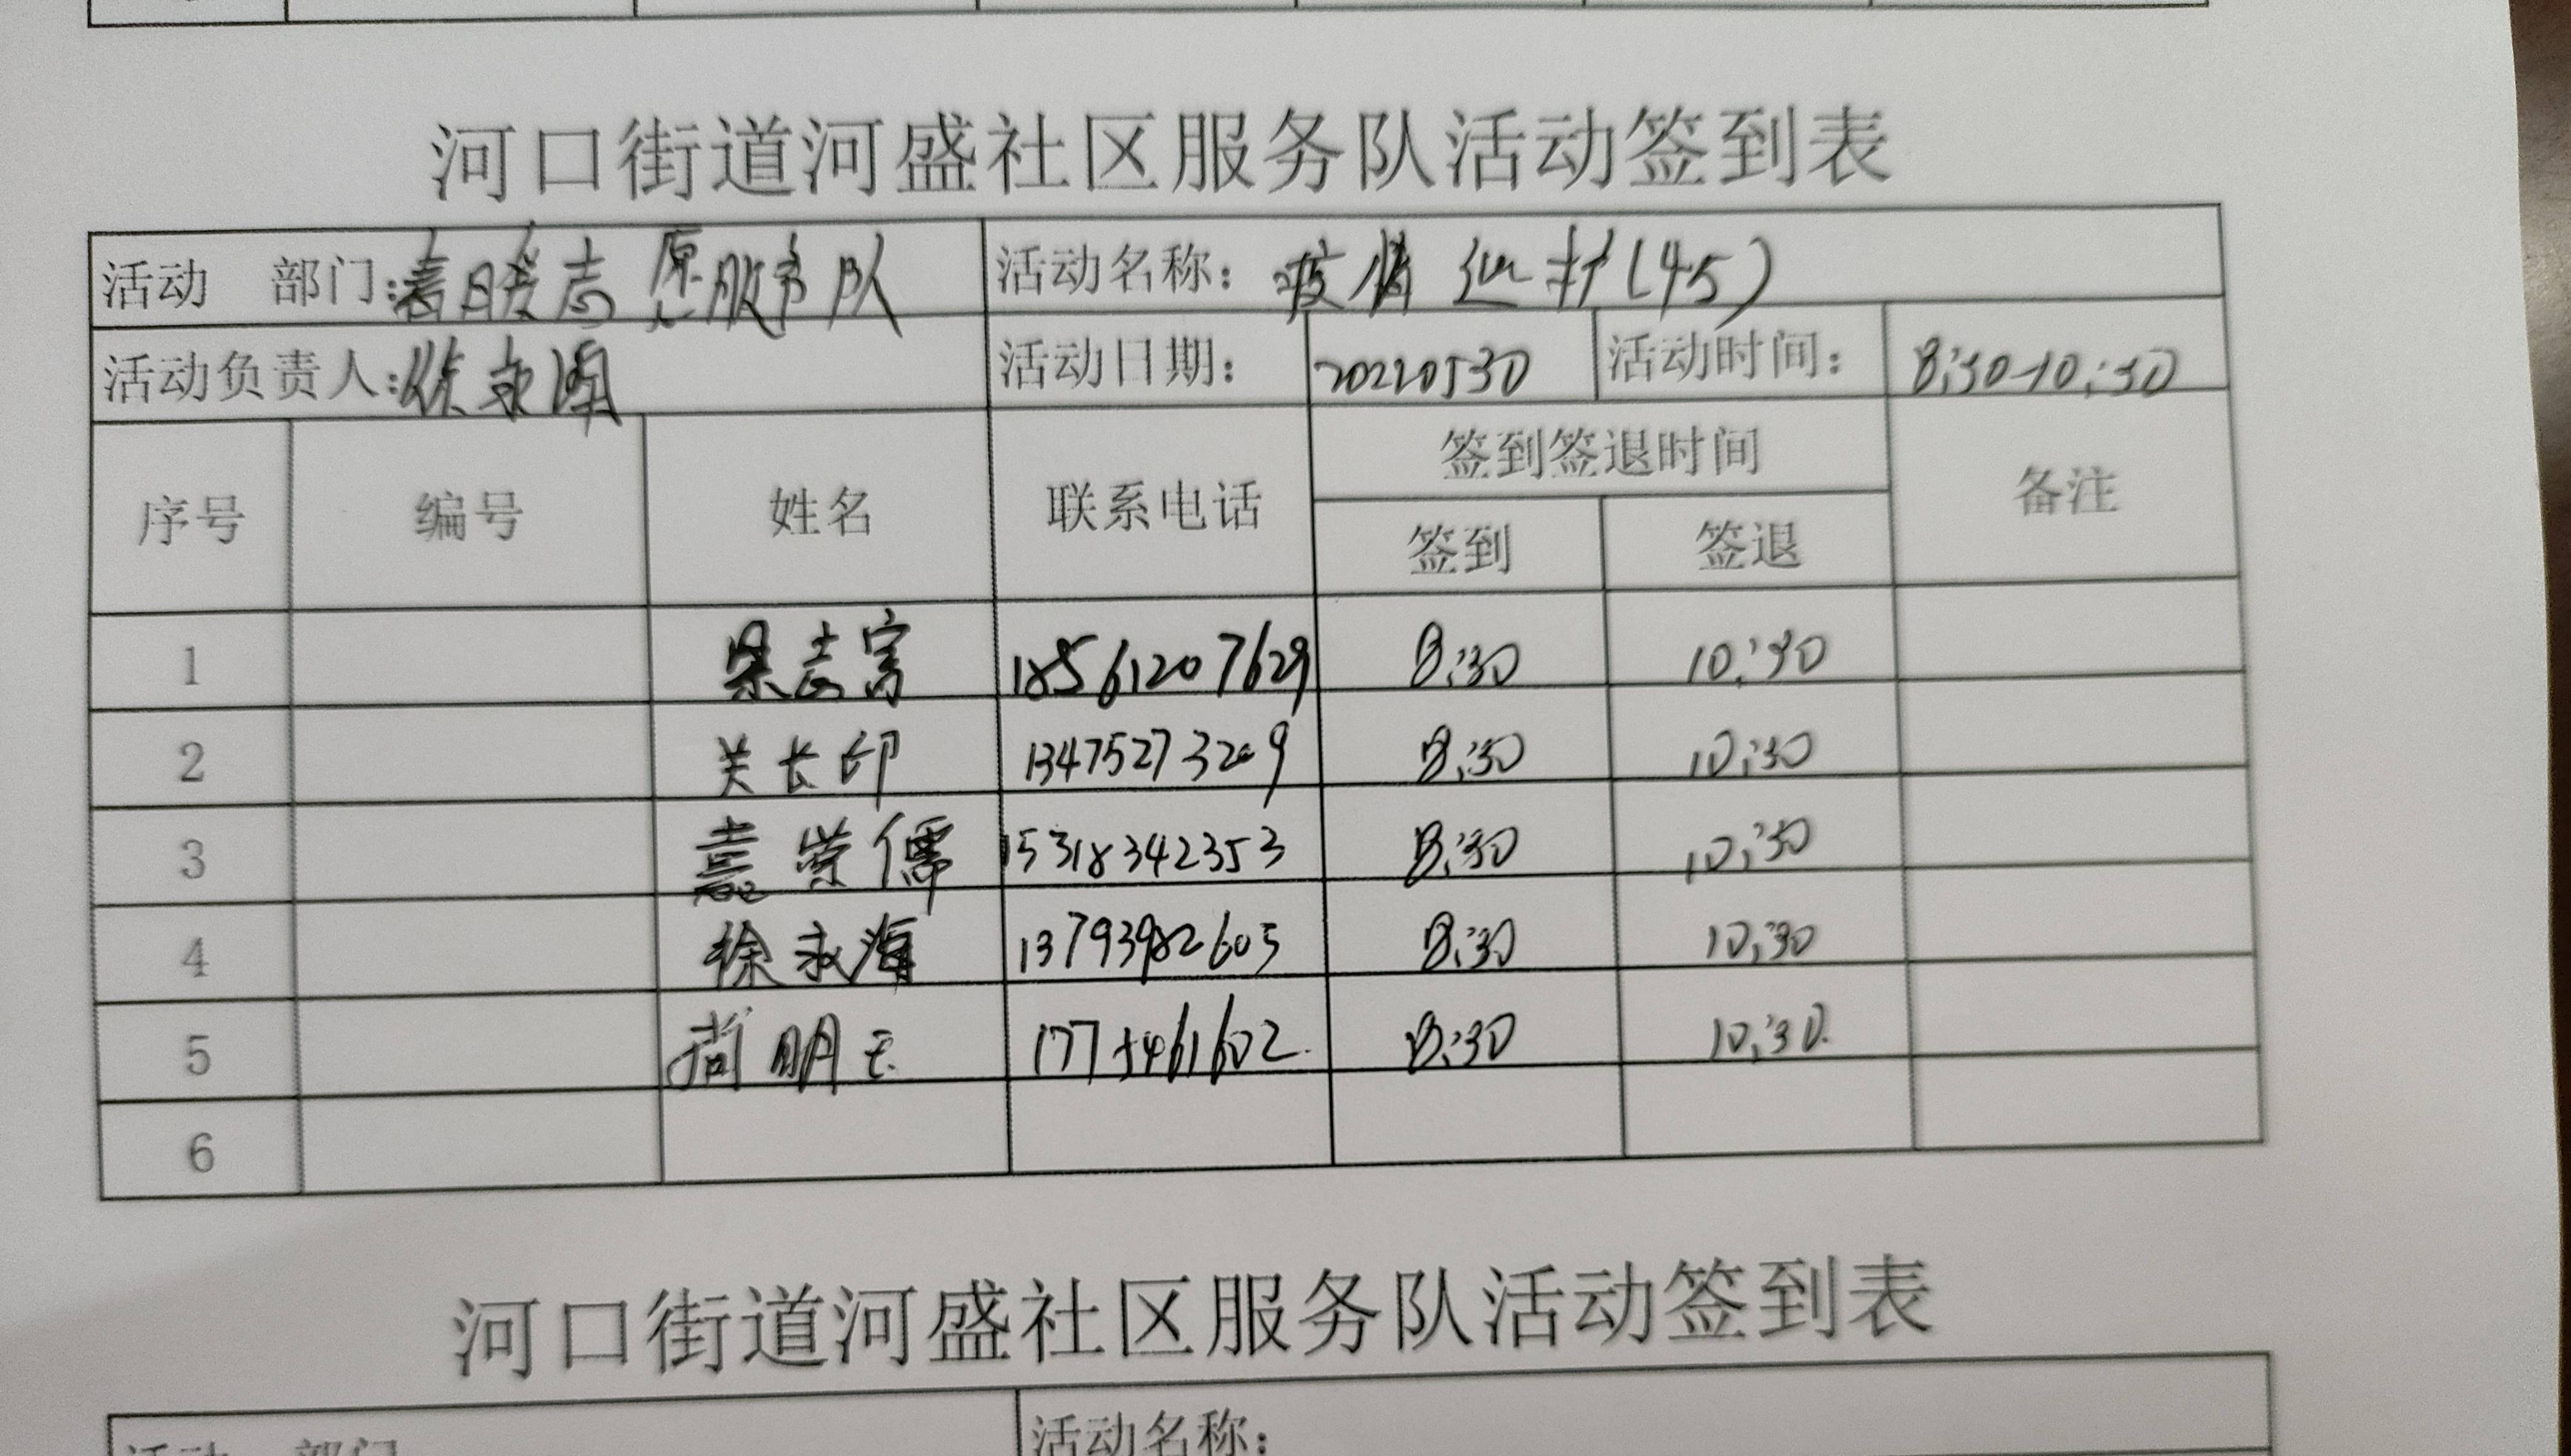 河口街道河盛社区服务队活动签到表
活动 部门:春暖志愿服务队 活动名称: 疫情 (45)
活动负责人:徐永海 活动日期: 20220530 活动时间: 8:30-10:30
序号 编号 姓名 联系电话 签到签退时间 备注
签到 签退
1 梁志富 18561207629 8:30 10:30
2 关长印 13475273209 8:30 10:30
3 荣儒 15318342353 8:30 10:30
4 徐永海 13793982605 8:30 10:30
5 尚明玉 8:30 10:30
6
河口街道河盛社区服务队活动签到表
活动 部门 活动名称: